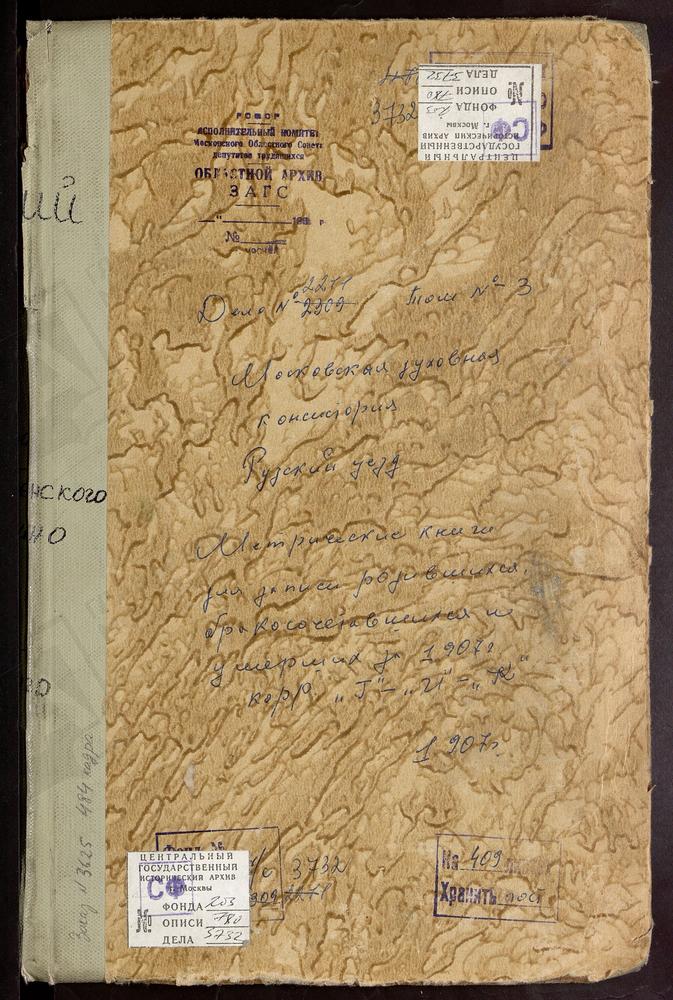 ДЕЛА 3732
№ ОПИСИ 780
ФОНДА 203
г. Москвы
ИСТОРИЧЕСКИЙ АРХИВ
ГОСУДАРСТВЕННЫЙ
ЦЕНТРАЛЬНЫЙ
СФ
3732
РСФСР
ИСПОЛНИТЕЛЬНЫЙ КОМИТЕТ
Московского Областного Совета
депутатов трудящихся
ОБЛАСТНОЙ АРХИВ
ЗАГС
№
МОСКВА
ИЙ
2271
Дело № 2309 Том № 3
Московская духовная
консистория
Рузский уезд
нского
но
Метрические книги
для записи родившихся,
бракосочетавшихся и
умерших за 1907г
корр „Г" - „И" - „К"
1907г.
3625 484 кадра
Фонд №
3732
ЦЕНТРАЛЬНЫЙ
ГОСУДАРСТВЕННЫЙ
ИСТОРИЧЕСКИЙ АРХИВ
г. Москвы
СФ
ФОНДА 203
№ ОПИСИ 780
ДЕЛА 3732
На 409
Хранить пост